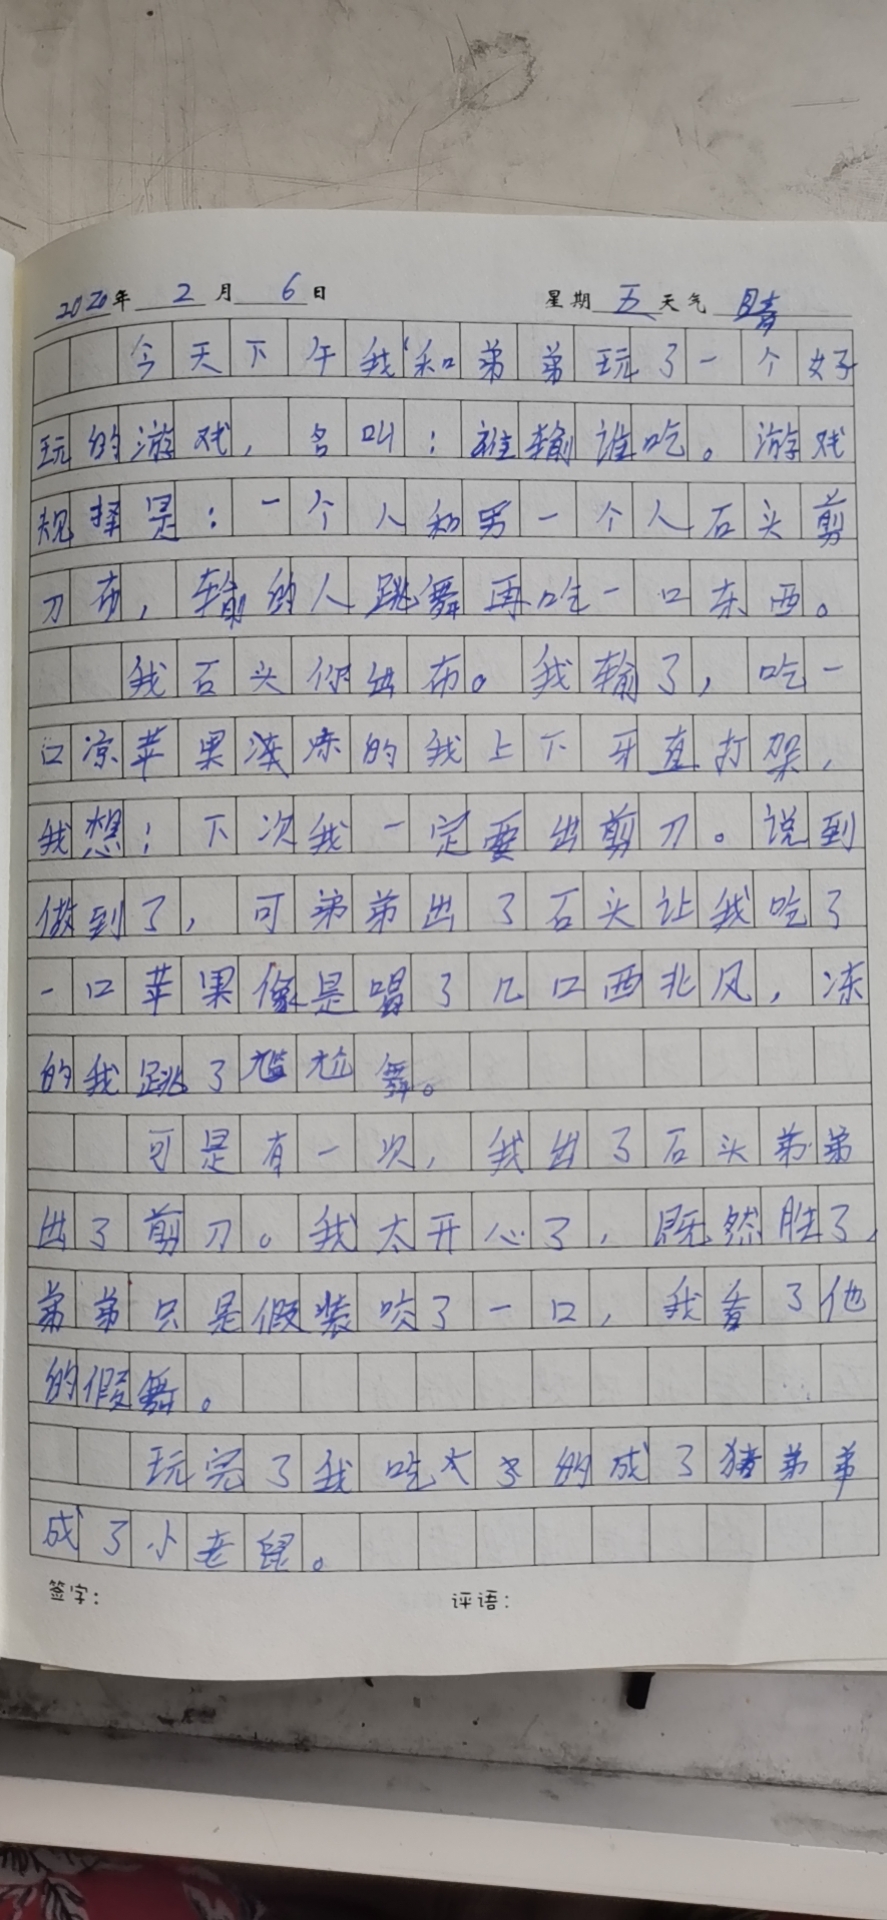 2020年 2 月 6 日 星期 五 天气 晴
今天下午我和弟弟玩了一个好
玩的游戏，名叫：谁输谁吃。游戏
规择是：一个人和另一个人石头剪
刀布，输的人跳舞再吃一口东西。
我石头你出布。我输了，吃一
口凉苹果凑冻的我上下牙直打架，
我想：下次我一定要出剪刀。说到
做到了，可弟弟出了石头让我吃了
一口苹果像是喝了几口西北风，冻
的我跳了尴尬舞。
可是有一次，我出了石头弟弟
出了剪刀。我太开心了，既然胜了，
弟弟只是假装咬了一口，我看了他
的假舞。
玩完了我吃太多的成了猪弟弟
成了小老鼠。
签字： 评语：